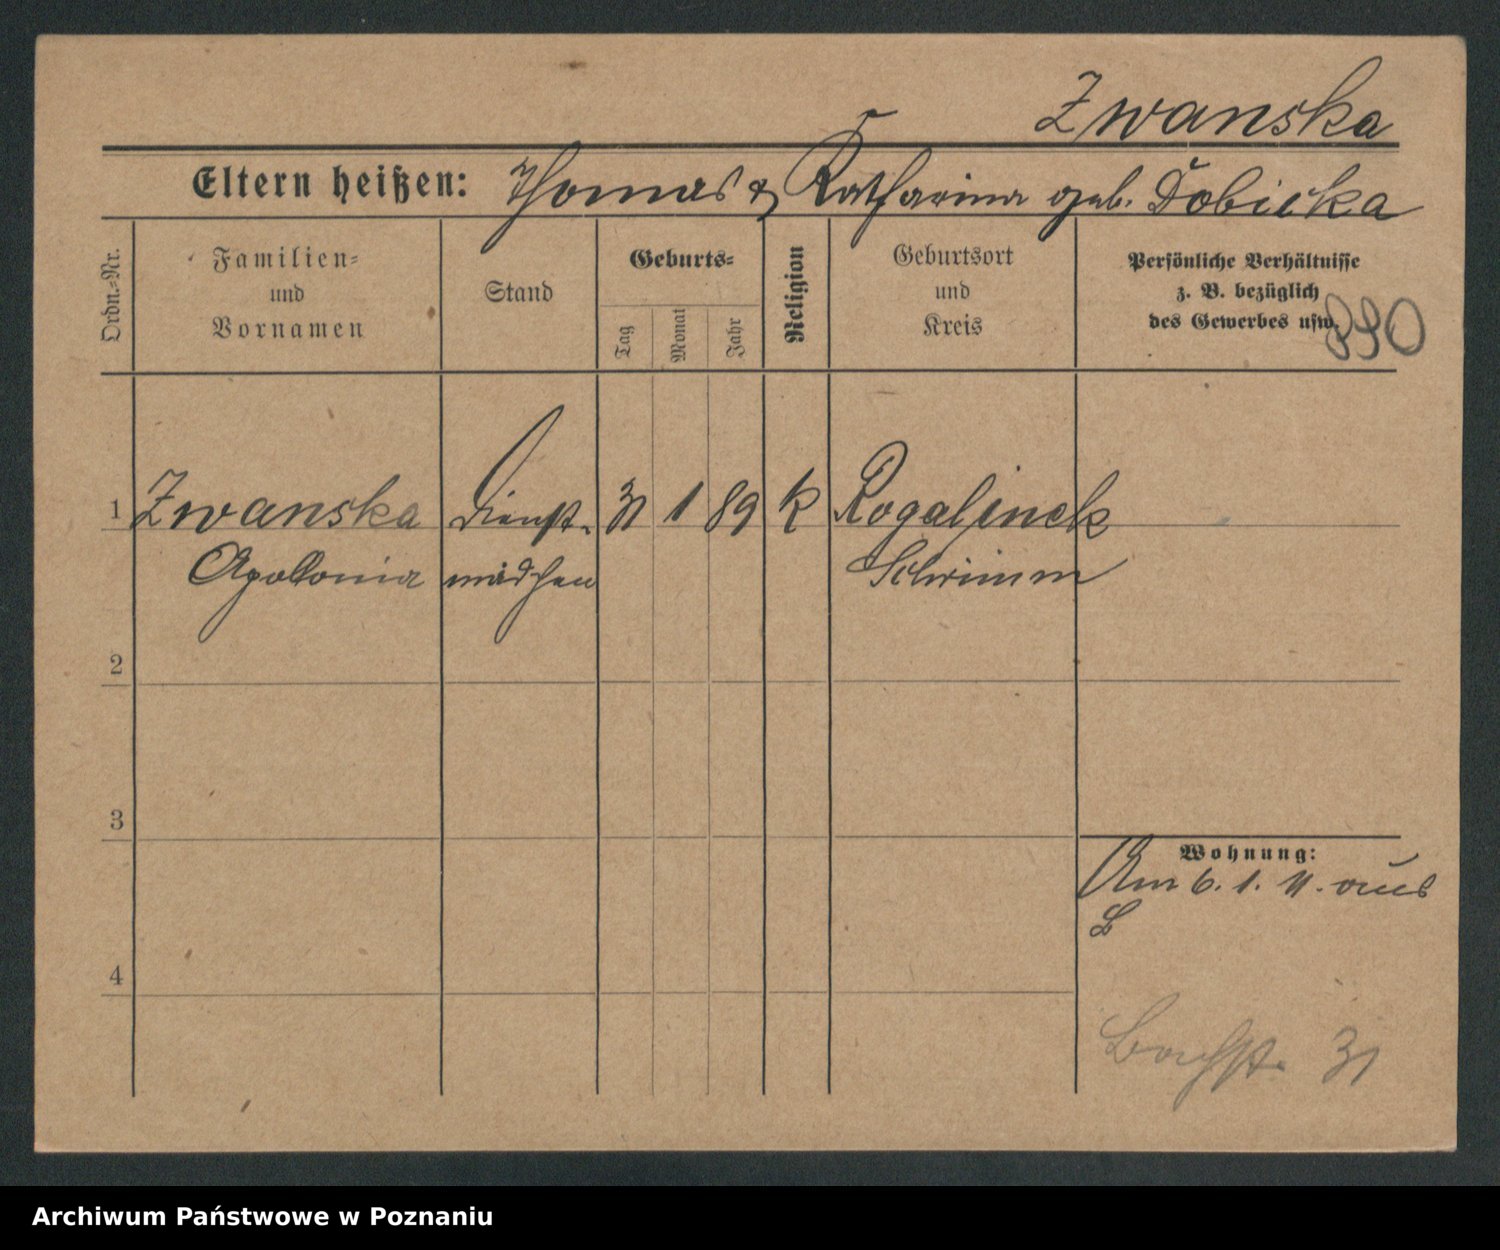 Zwanska
Eltern heißen: Thomas & Katharina geb. Dobicka
Ordn.=Nr.
Familien=
und
Vornamen
Stand
Geburts=
Tag
Monat
Jahr
Religion
Geburtsort
und
Kreis
Persönliche Verhältnisse
z. B. bezüglich
des Gewerbes usw.
890
1 Zwanska Dienst- 31 1 89 k Rogalinek
Apollonia mädchen Schrimm
2
3
Wohnung:
Am 6. 1. 11. aus
4
Bachstr. 31
Archiwum Państwowe w Poznaniu